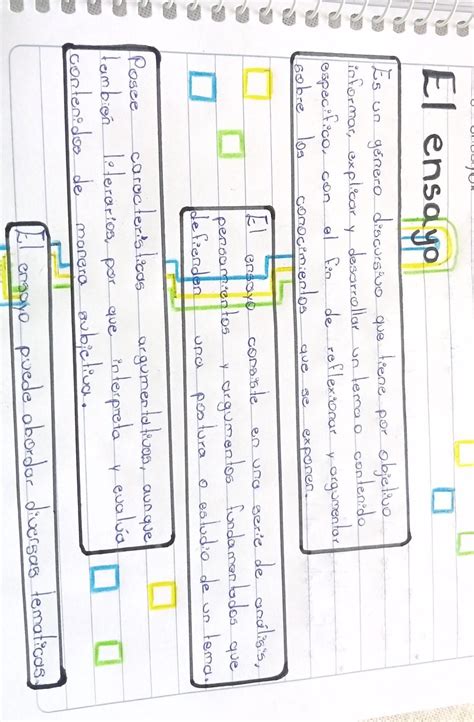 El ensayo
Es un género discursivo que tiene por objetivo
informar, explicar y desarrollar un tema o contenido
específico, con el fin de reflexionar y argumentar
sobre los conocimientos que se exponen.
El ensayo consiste en una serie de análisis,
pensamientos y argumentos fundamentados que
defienden una postura o estudio de un tema.
Posee características argumentativas, aunque
también literarios, por que interpreta y evalúa
contenidos de manera subjetiva.
El ensayo puede abordar diversas tematicas.